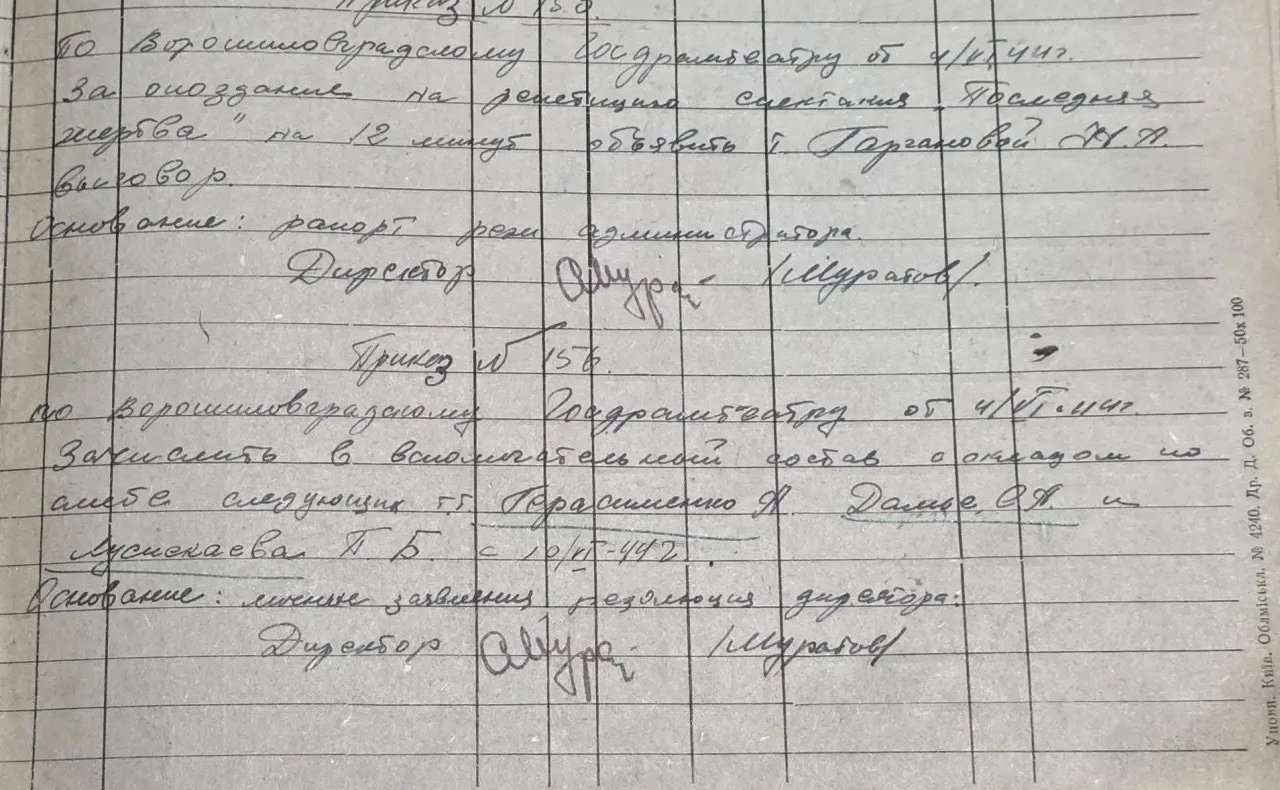 Приказ №
По Ворошиловградскому Госдрамтеатру от 4/VI 44г.
За опоздание на репетицию спектакля „Последняя
жертва" на 12 минут объявить т. Горгановой Н.А.
выговор.
Основание: рапорт реж администратора.
Директор /Муратов/.
Приказ № 156.
по Ворошиловградскому Госдрамтеатру от 4/VI-44г.
Зачислить в вспомагательный состав с окладом по
смете следующих т.т. Герасименко А. О.А. и
Луспекаева П. Б. с 10/VI-44г.
Основание: личные заявления, резолюция директора:
Директор /Муратов/
Упови. Київ. Облміськл. № 4240. Др. Д. Об. з. № 287—50х100